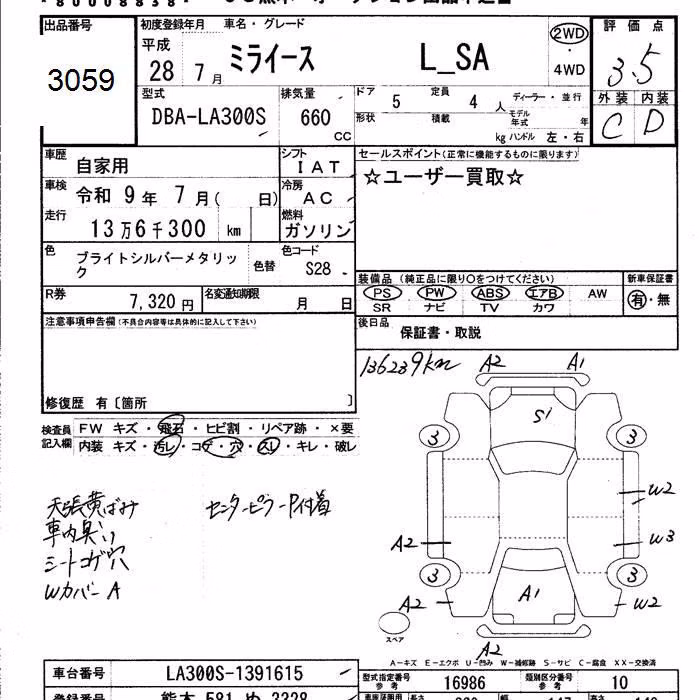 出品番号
3059
初度登録年月
平成
28 7月
車名・グレード
ミライース L_SA
2WD
4WD
評価点
3.5
外装 内装
C D
型式
DBA-LA300S
排気量
660
CC
ドア
5
定員
4
人
ディーラー・並行
形状
積載
kg
モデル年式
年
ハンドル 左・右
車歴
自家用
シフト
IAT
セールスポイント(正常に機能するものに限ります)
☆ユーザー買取☆
車検
令和 9年 7月( 日)
冷房
AC
走行
13万6千300 km
燃料
ガソリン
色
ブライトシルバーメタリック
色替
色コード
S28
装備品 (純正品に限り○をつけてください)
PS PW ABS エアB AW
SR ナビ TV カワ
新車保証書
有・無
R券
7,320円
名変通知期限
月 日
後日品
保証書・取説
注意事項申告欄(不具合内容等は具体的に記入して下さい)
修復歴 有〔箇所 〕
検査員記入欄
FW キズ・飛石・ヒビ割・リペア跡・×要
内装 キズ・汚レ・コゲ・穴・スレ・キレ・破レ
136239km
A2 A1
S1
3 3
W2
A2
W3
3 3
A1
A2
W2
スペア
A2
天張黄ばみ
車内臭い
シートコゲ穴
Wカバー A
センターピラーP付着
A-キズ E-エクボ U-凹み W-補修跡 S-サビ C-腐食 XX-交換済
車台番号
LA300S-1391615
型式指定番号
参考
16986
類別区分番号
参考
10